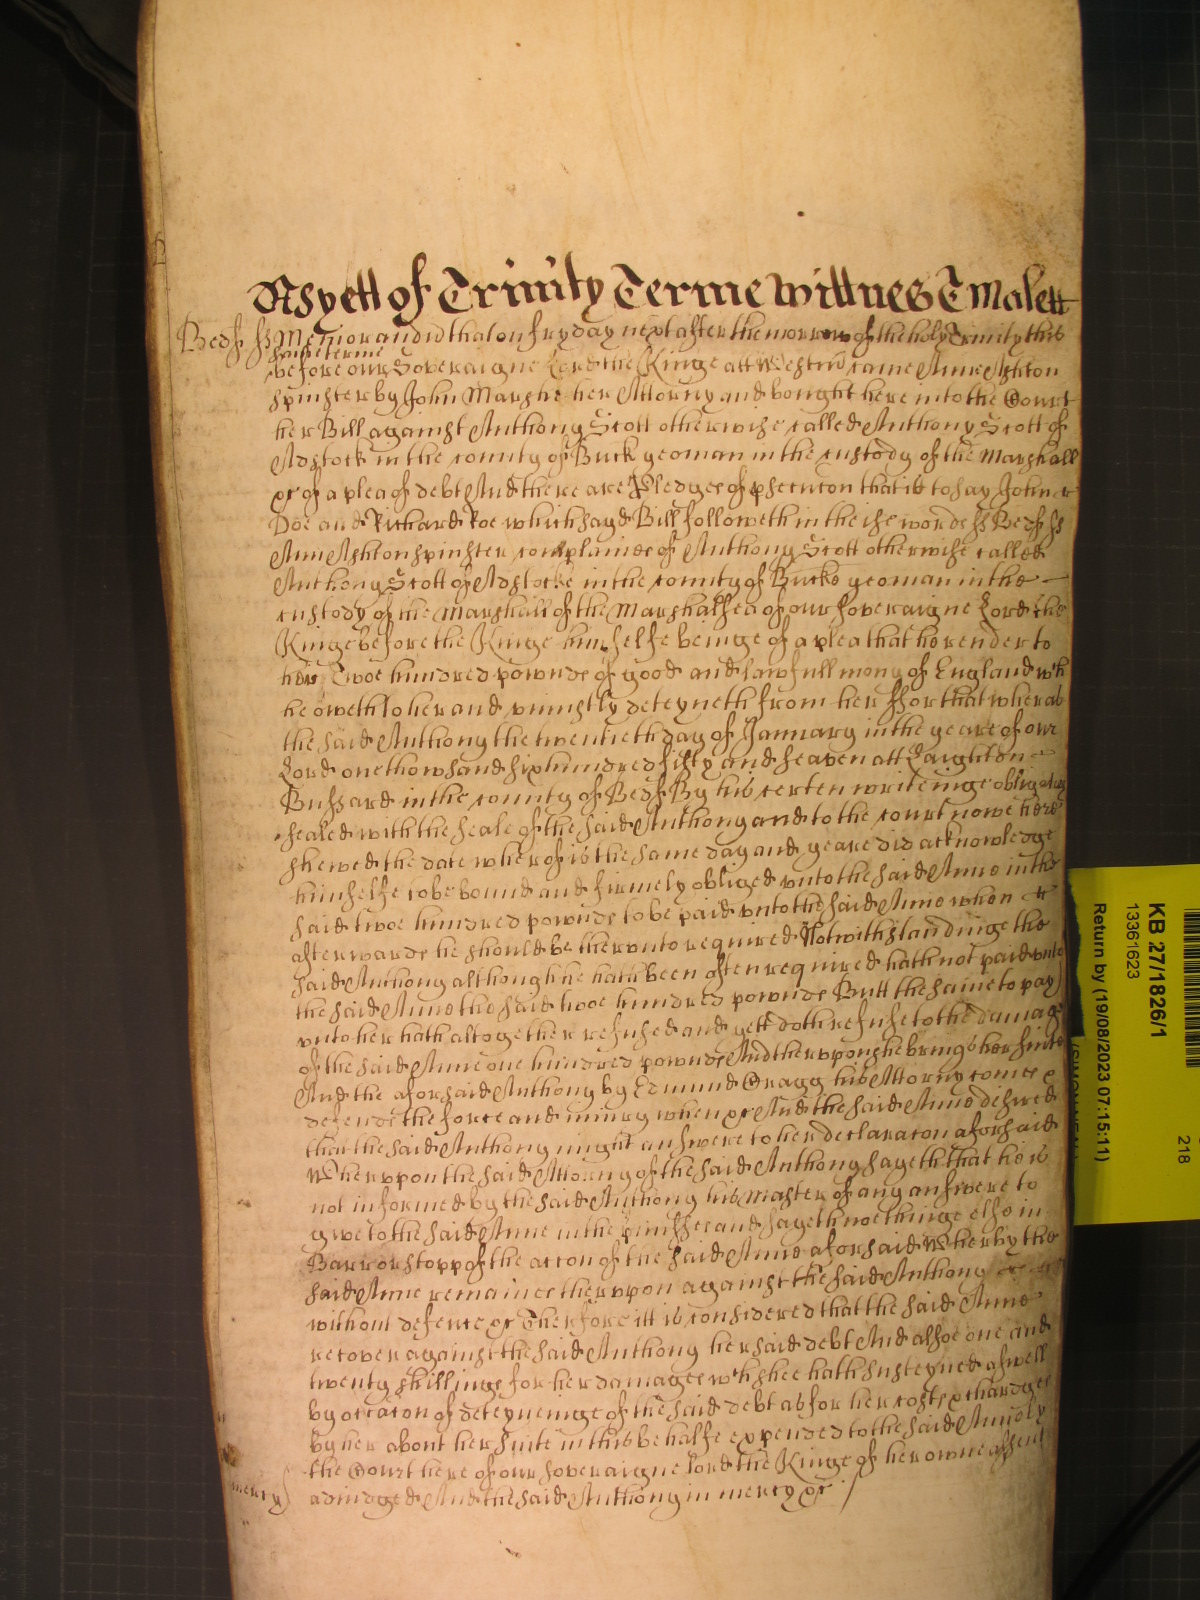 As yett of Trinity Terme Wittnes T Malett
Bedf ss Memorandu that on fryday next after the morrow of the holy Trinity this
same terme
before our Soveraigne Lord the Kinge att Westm came Anne Ashton
spinster by John Marshe her Attorny and bought here into the Court
her Bill against Anthony Scott otherwise called Anthony Scott of
Adstock in the county of Buck yeoman in the custody of the Marshall
&c of a plea of debt And there are Pledges of psecucon that is to say John
Doe and Richard Roe which sayd Bill followeth in theise words ss Bedf ss
Ann Ashton spinster complaines of Anthony Scott otherwise called
Anthony Scott of Adstocke in the county of Bucks yeoman in the
custody of the Marshall of the Marshalsea of our soveraigne Lord the
Kinge before the Kinge himselfe beinge of a plea that he render to
her Twoe hundred pownds of good and lawfull mony of England wch
he oweth to her and uniustly deteyneth from her ffor that wheras
the said Anthony the twentieth day of January in the yeare of our
Lord one thowsand six hundred fifty and seaven att Laighton
Bussard in the county of Bedf By his certen writeinge obligatory
sealed with the seale of the said Anthony and to the court nowe here
shewed the date wherof is the same day and yeare did acknowledge
himselfe to be bound and firmely obliged unto the said Anne in the
said twoe hundred pownds to be paid unto the said Anne when
afterwards he should be therunto required Notwithstandinge the
said Anthony although he hath been often required hath not paid unto
the said Anne the said twoe hundred pownds Butt the same to pay
unto her hath altogether refused and yett doth refuse to the damage
of the said Anne one hundred pownds And therupon she brings her suite
And the aforsaid Anthony by Edmund Bragg his Attorny comes &
defends the force and iniury when &c And the said Anne desired
that the said Anthony might answere to her declaracon aforsaid
Wherupon the said Attorny of the said Anthony sayeth that he is
not informed by the said Anthony his Master of any answere to
give to the said Anne in the pmisses and sayeth noe thinge else in
Barr or stopp of the accon of the said Anne aforsaid Wherby the
said Anne remaines therupon against the said Anthony
without defence &c Therfore itt is considered that the said Anne
recover against the said Anthony her said debt And alsoe one and
twenty shillings for her damages wch shee hath susteyned aswell
by occacon of deteyneinge of the said debt as for her costs & chardges
by her about her suite in this behalfe expended to the said Anne by
the Court here of our soveraigne lord the Kinge of her owne assent
mercy adiudged And the said Anthony in mercy &c
KB 27/1826/1
13361623
218
Return by (19/08/2023 07:15:11)